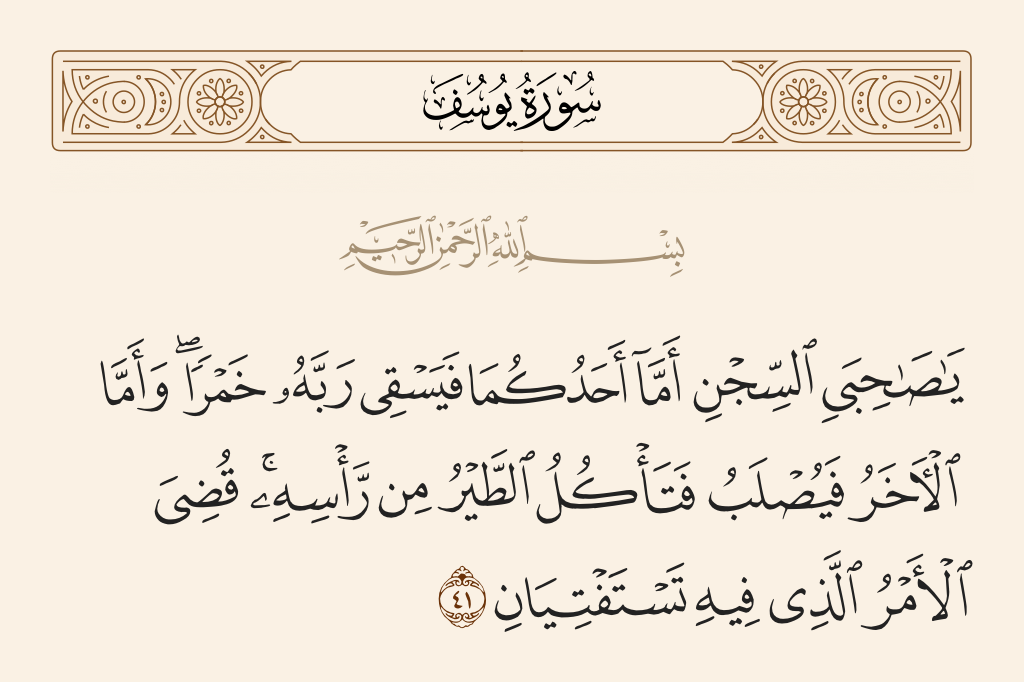 سُورَةُ يُوسُفَ
بِسْمِ ٱللَّهِ ٱلرَّحْمَٰنِ ٱلرَّحِيمِ
يَٰصَٰحِبَىِ ٱلسِّجْنِ أَمَّآ أَحَدُكُمَا فَيَسْقِى رَبَّهُۥ خَمْرًا ۖ وَأَمَّا
ٱلْـَٔاخَرُ فَيُصْلَبُ فَتَأْكُلُ ٱلطَّيْرُ مِن رَّأْسِهِۦ ۚ قُضِىَ
ٱلْأَمْرُ ٱلَّذِى فِيهِ تَسْتَفْتِيَانِ ٤١